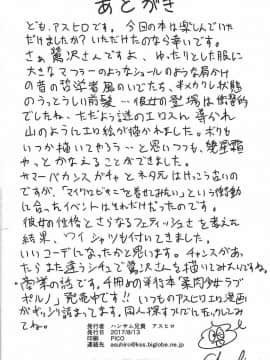 あとがき
ども、アスヒロです。今回の本は楽しんでいた
だけましたか？いただけたのなら幸いです。
さぁ鷺沢さんですよ、ゆったりとした服に
大きなマフラーのようなショールのような肩かけ
の昔の哲学者風のいでたち、半メカクレ状態
のうっとうしい前髪…彼女の登場は衝撃的
でしたね、ただよう謎のエロスに
山のようにエロ絵が描かれました。ボクも
いつか描いてやろう…と思いつつも、
やっとかなえることができました。
サマーバカンスガチャとネタ元はけっこう古いの
ですが、「マイクロビキニを着せてみたい」という衝動
に合ったイベントはそれだけだったのです。
彼女の性格とさらなるフェティッシュさを考えた
結果、ワイシャツも付いてきました。
いいコーデになったかと思います。チャンスがあっ
たらまた違うシチュで鷺沢さんを描いてみたいですね。
商業の話です。4冊めの単行本「
ポルノ」発売中です!! いつものアスヒロエロ漫画
がギッシリ詰まってます。
てね。
発行者 ハンサム兄貴 アスヒロ
発行日 2017/8/13
印刷所 PICO
連絡先 asuhiro@kss.biglobe.ne.jp